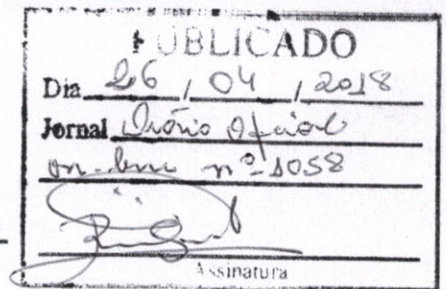 PUBLICADO
Dia 26 / 04 / 2018
Jornal Diário Oficial
on-line nº 1058
Assinatura